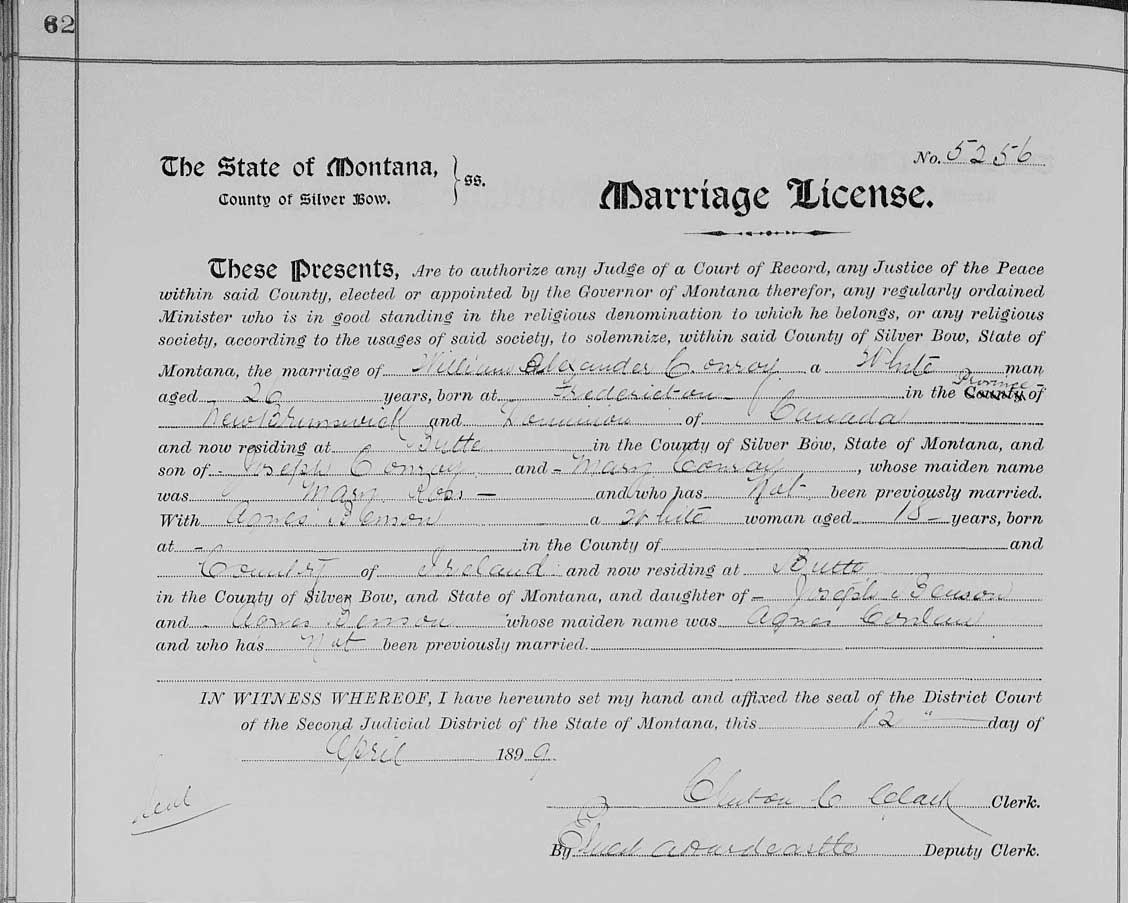 62
No. 5256
The State of Montana, } ss.
County of Silver Bow.
Marriage License.
These Presents, Are to authorize any Judge of a Court of Record, any Justice of the Peace
within said County, elected or appointed by the Governor of Montana therefor, any regularly ordained
Minister who is in good standing in the religious denomination to which he belongs, or any religious
society, according to the usages of said society, to solemnize, within said County of Silver Bow, State of
Montana, the marriage of William Alexander Conroy a White man
aged 26 years, born at Fredericton in the Province County of
New Brunswick and Dominion of Canada
and now residing at Butte in the County of Silver Bow, State of Montana, and
son of Joseph Conroy and Mary Conroy, whose maiden name
was Mary Ross and who has Not been previously married.
With Agnes Benson a White woman aged 18 years, born
at in the County of and
Country of Ireland and now residing at Butte
in the County of Silver Bow, and State of Montana, and daughter of Joseph Benson
and Agnes Benson whose maiden name was Agnes
and who has Not been previously married.
IN WITNESS WHEREOF, I have hereunto set my hand and affixed the seal of the District Court
of the Second Judicial District of the State of Montana, this 12" day of
April 1899.
Seal
C. Clark Clerk.
By Deputy Clerk.